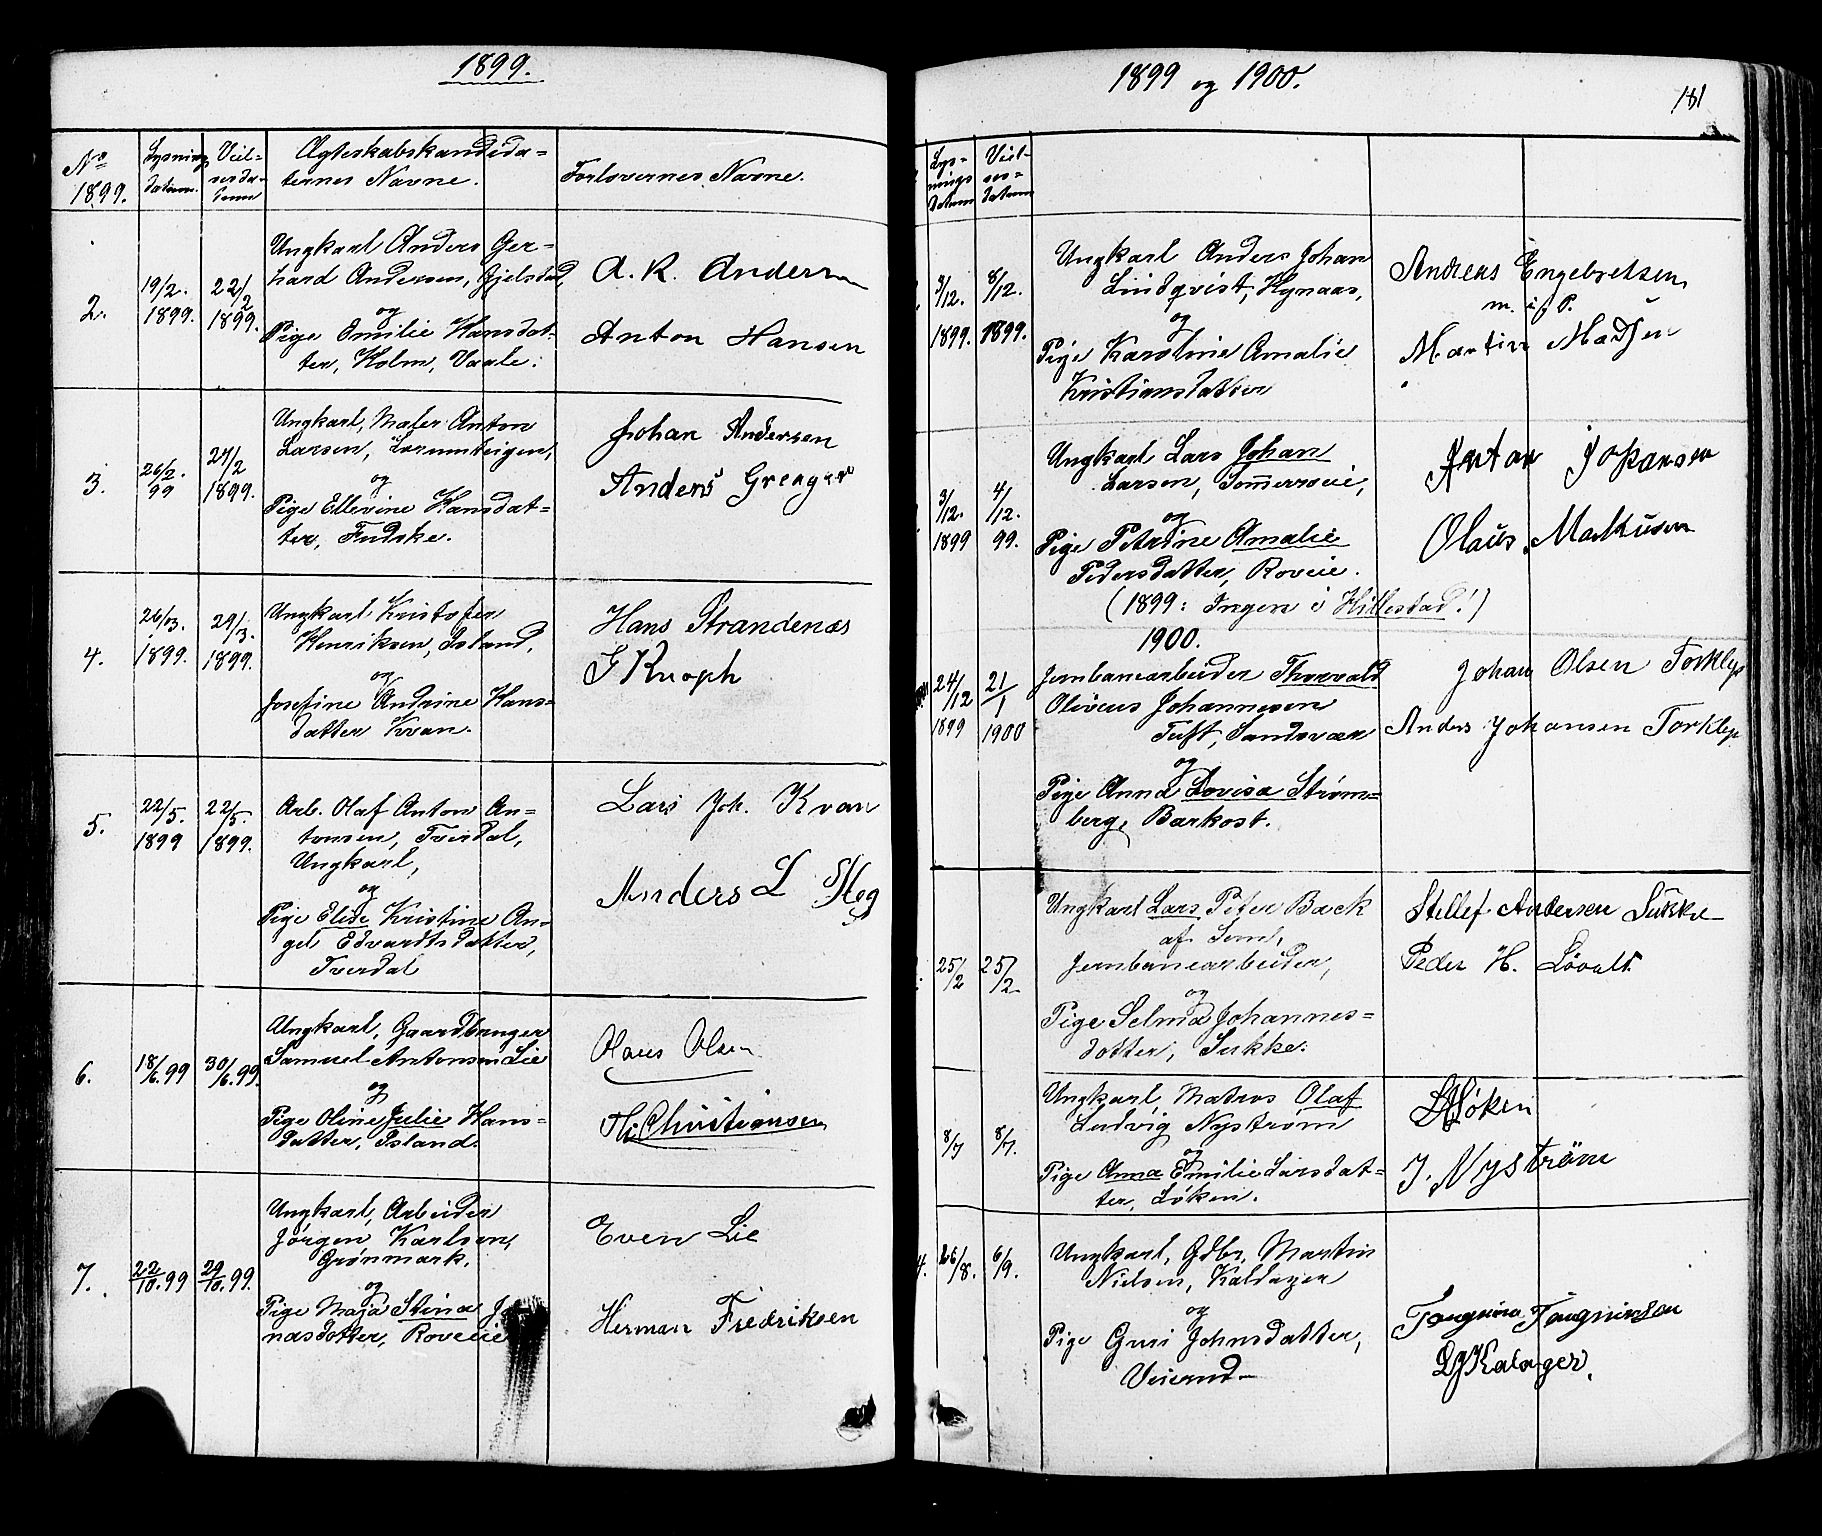 1899.
No
1899.
Lysnings
datum.
Viel-
sesda-
tum
Ægteskabskandida-
ternes Navne.
Forlovernes Navne.
2.
19/2.
1899.
22/2
1899.
Ungkarl Anders Ger-
hard Andersen, Gjelstad,
og
Pige Emilie Hansdat-
ter, Holm, Vaale:
A. K. Andersen
Anton Hansen
3.
26/2.
99
27/2
1899.
Ungkarl, Maler Anton
Larsen,
og
Pige Ellevine Hansdat-
ter, Fudske.
Johan Andersen
Anders Grenger
4.
26/3.
1899.
29/3.
1899.
Ungkarl Kristofer
Henriksen, Island,
og
Josefine Andrine Hans-
datter Kvan.
Hans Strandenæs
J Knoph
5.
22/5.
1899
22/5.
1899.
Arb. Olaf Anton An-
tonsen, Tverdal,
Ungkarl,
og
Pige Elise Kristine An-
gel Edvardtsdatter,
Tverdal
Lars Joh. Kvan
Anders L
6.
18/6.99
30/6.99.
Ungkarl, Gaardbruger
Samuel Antonsen Lie
og
Pige Oline Julie Hans-
datter, Island.
Olaus Olsen
H. Christiansen
7.
22/10.99
29/10.99.
Ungkarl, Arbeider
Jørgen Karlsen,
Grønmark,
og
Pige Maja Stina Jo-
nasdotter, Roveie
Even Lie
Herman Fredriksen
1899 og 1900.
181
Lys-
nings
datum
Viel-
ses-
datum
3/12.
1899.
8/12.
1899.
Ungkarl Anders Johan
Lindqvist, Hynaas,
og
Pige Karoline Amalie
Kristiansdatter
Andreas Engebretsen
m. i. f P.
Martin Madsen
3/12.
1899
4/12.
99.
Ungkarl Lars Johan
Larsen, Sommerroveie,
og
Pige Petrine Amalie
Pedersdatter, Roveie.
Anton Johansen
Olaus Markusen
(1899: Ingen i Hillestad!)
1900.
24/12
1899
21/1
1900
Jernbanearbeider Thorvald
Oliveus Johannesen
Tuft, Sandsvær
og
Pige Anna Lovisa Strøm-
berg, Barkost.
Johan Olsen Torklep
Anders Johansen Torklep
25/2
25/2
Ungkarl Lars Peter Back
af Sem,
Jernbanearbeider,
og
Pige Selma Johannes-
dotter, Sukke.
Stellef Andersen Sukke
Peder H. Løvalt
8/7
8/7.
Ungkarl, Matros Olaf
Ludvig Nystrøm
og
Pige Anna Emilie Larsdat-
ter, Løken.
Løken
J. Nyström
4.
26/8.
6/9.
Ungkarl, Gdbr. Martin
Nielsen, Kaldager
og
Pige Guri Johnsdatter,
Veierud